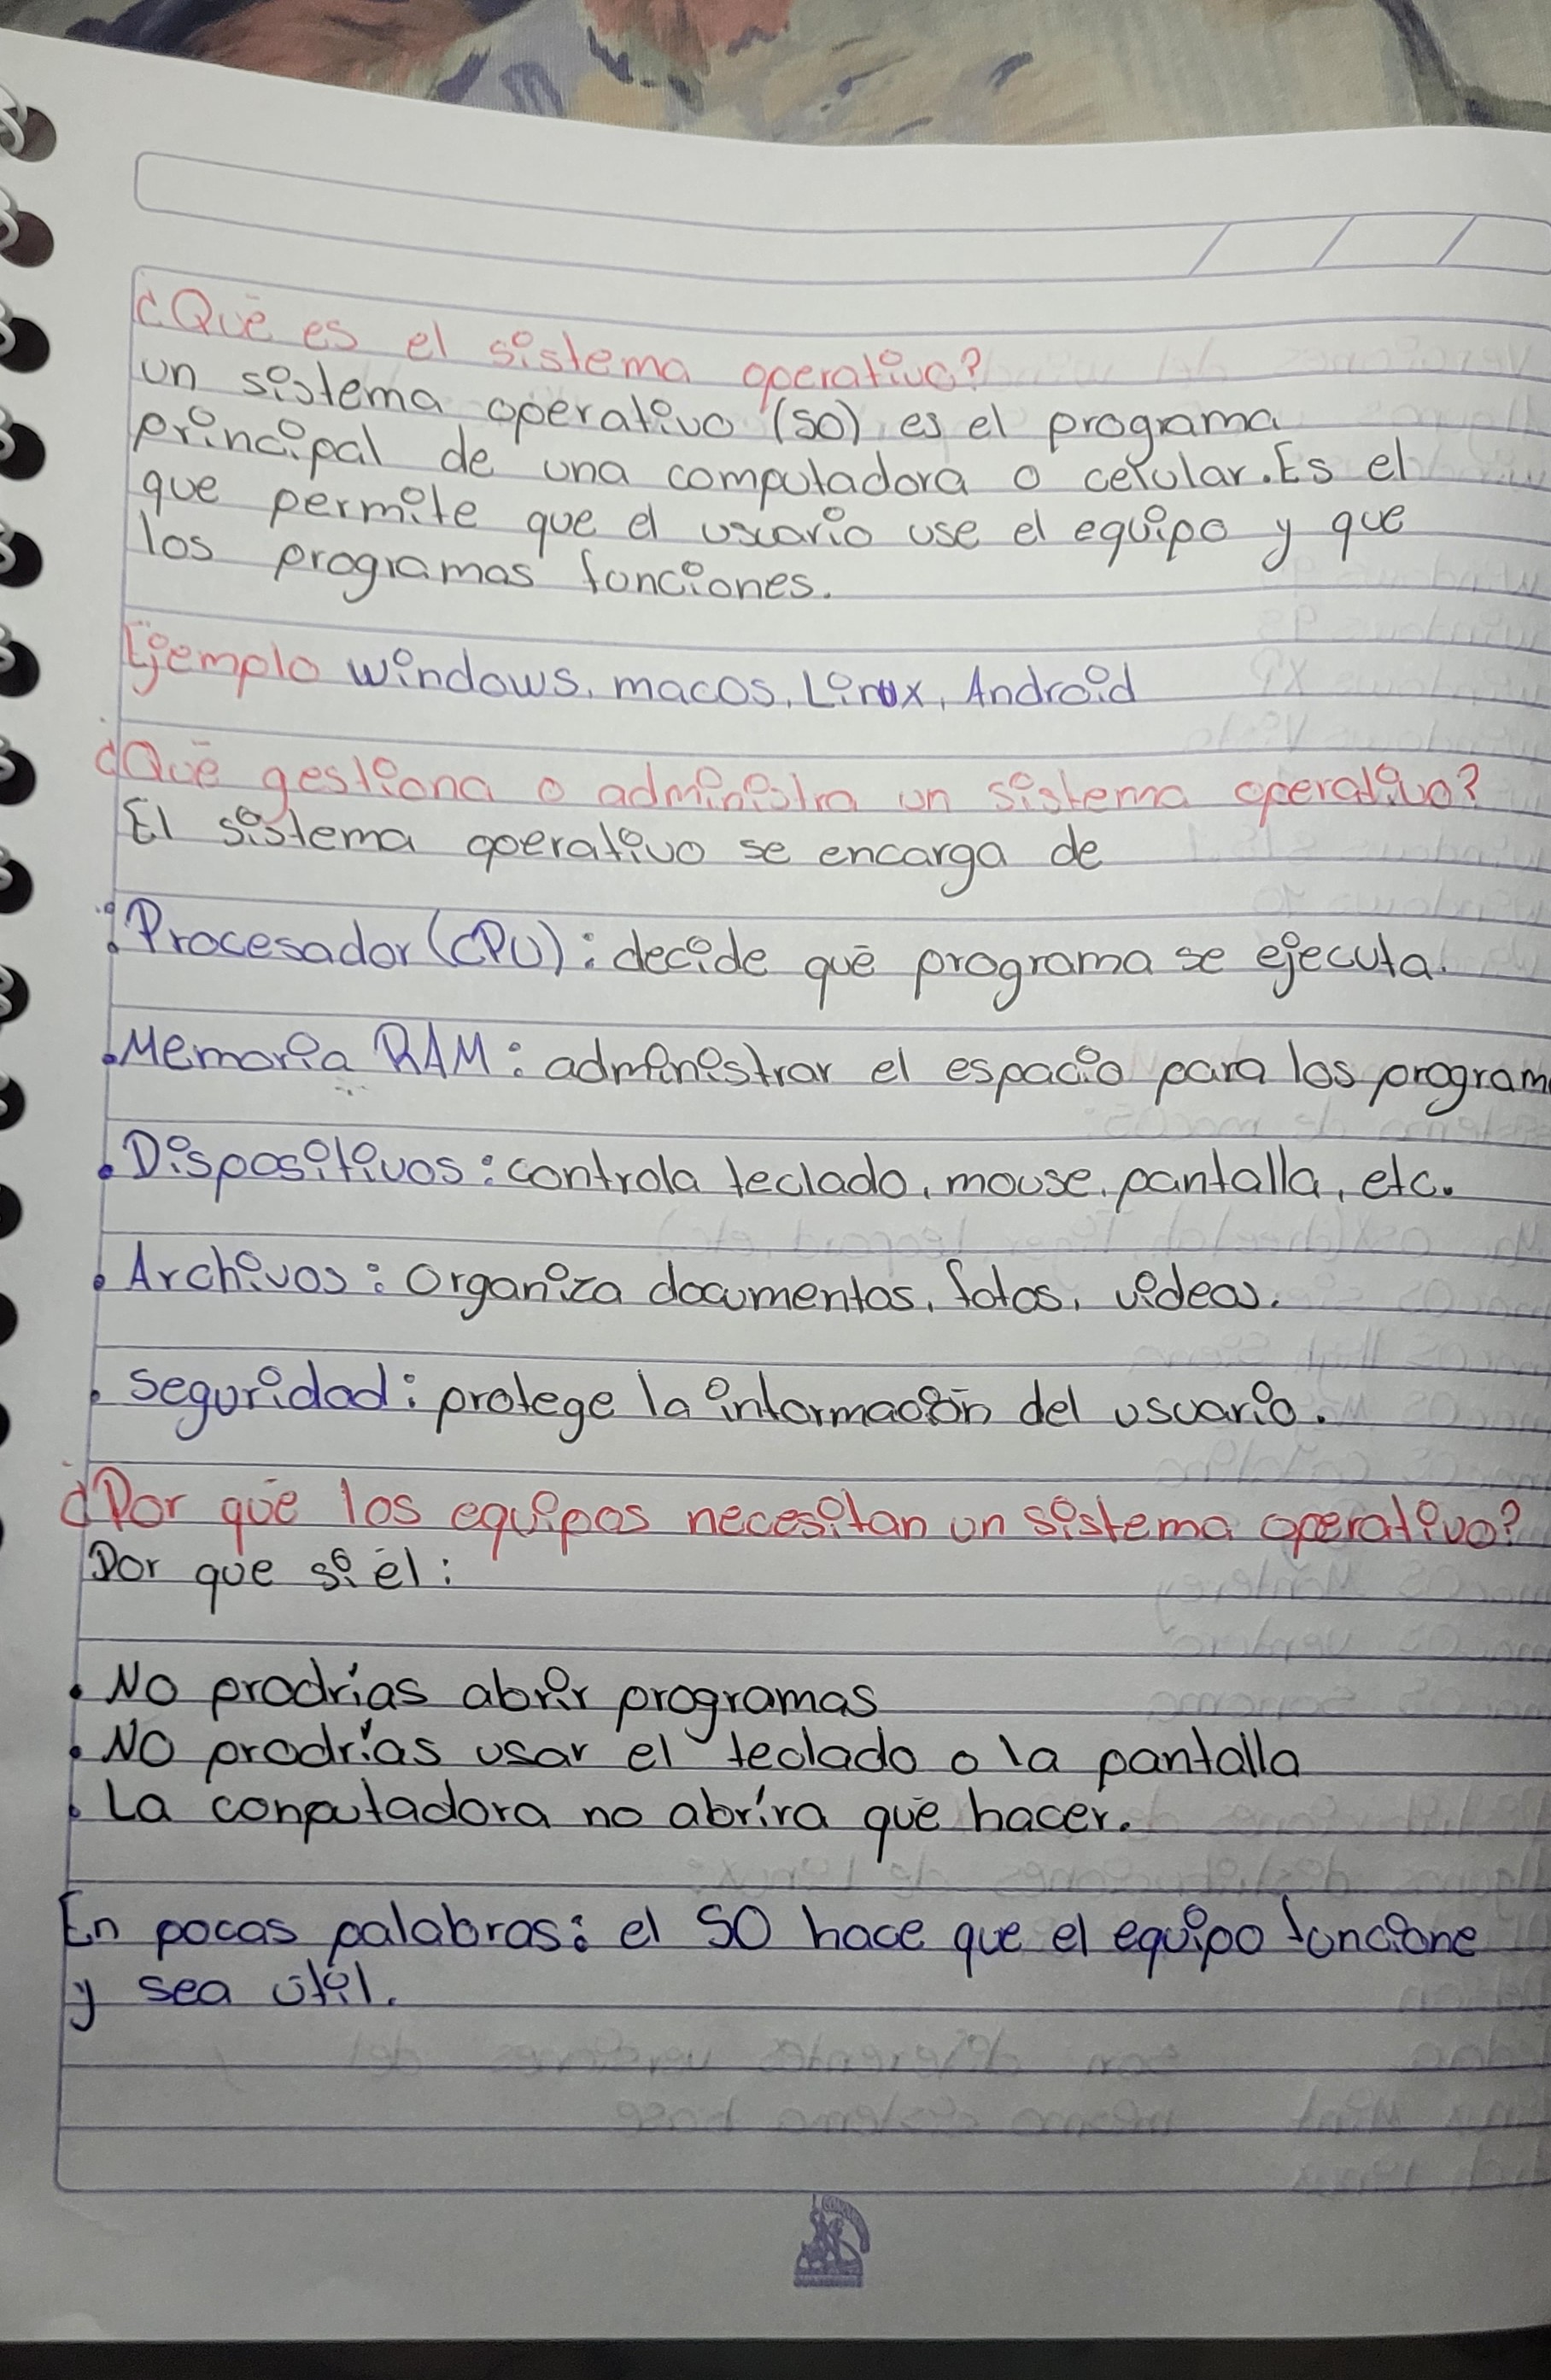 ¿Qué es el sistema operativo?
un sistema operativo (SO) es el programa
principal de una computadora o celular. Es el
que permite que el usuario use el equipo y que
los programas funciones.
Ejemplo windows, macos, Linux, Android
¿Qué gestiona o administra un sistema operativo?
El sistema operativo se encarga de
Procesador (CPU): decide qué programa se ejecuta.
Memoria RAM: administrar el espacio para los program
Dispositivos: controla teclado, mouse, pantalla, etc.
Archivos: Organiza documentos, fotos, videos.
seguridad: protege la información del usuario.
¿Por qué los equipos necesitan un sistema operativo?
Por que si él:
No prodrías abrir programas
No prodrías usar el teclado o la pantalla
La conputadora no abríra qué hacer.
En pocas palabras: el SO hace que el equipo funcione
y sea útil.